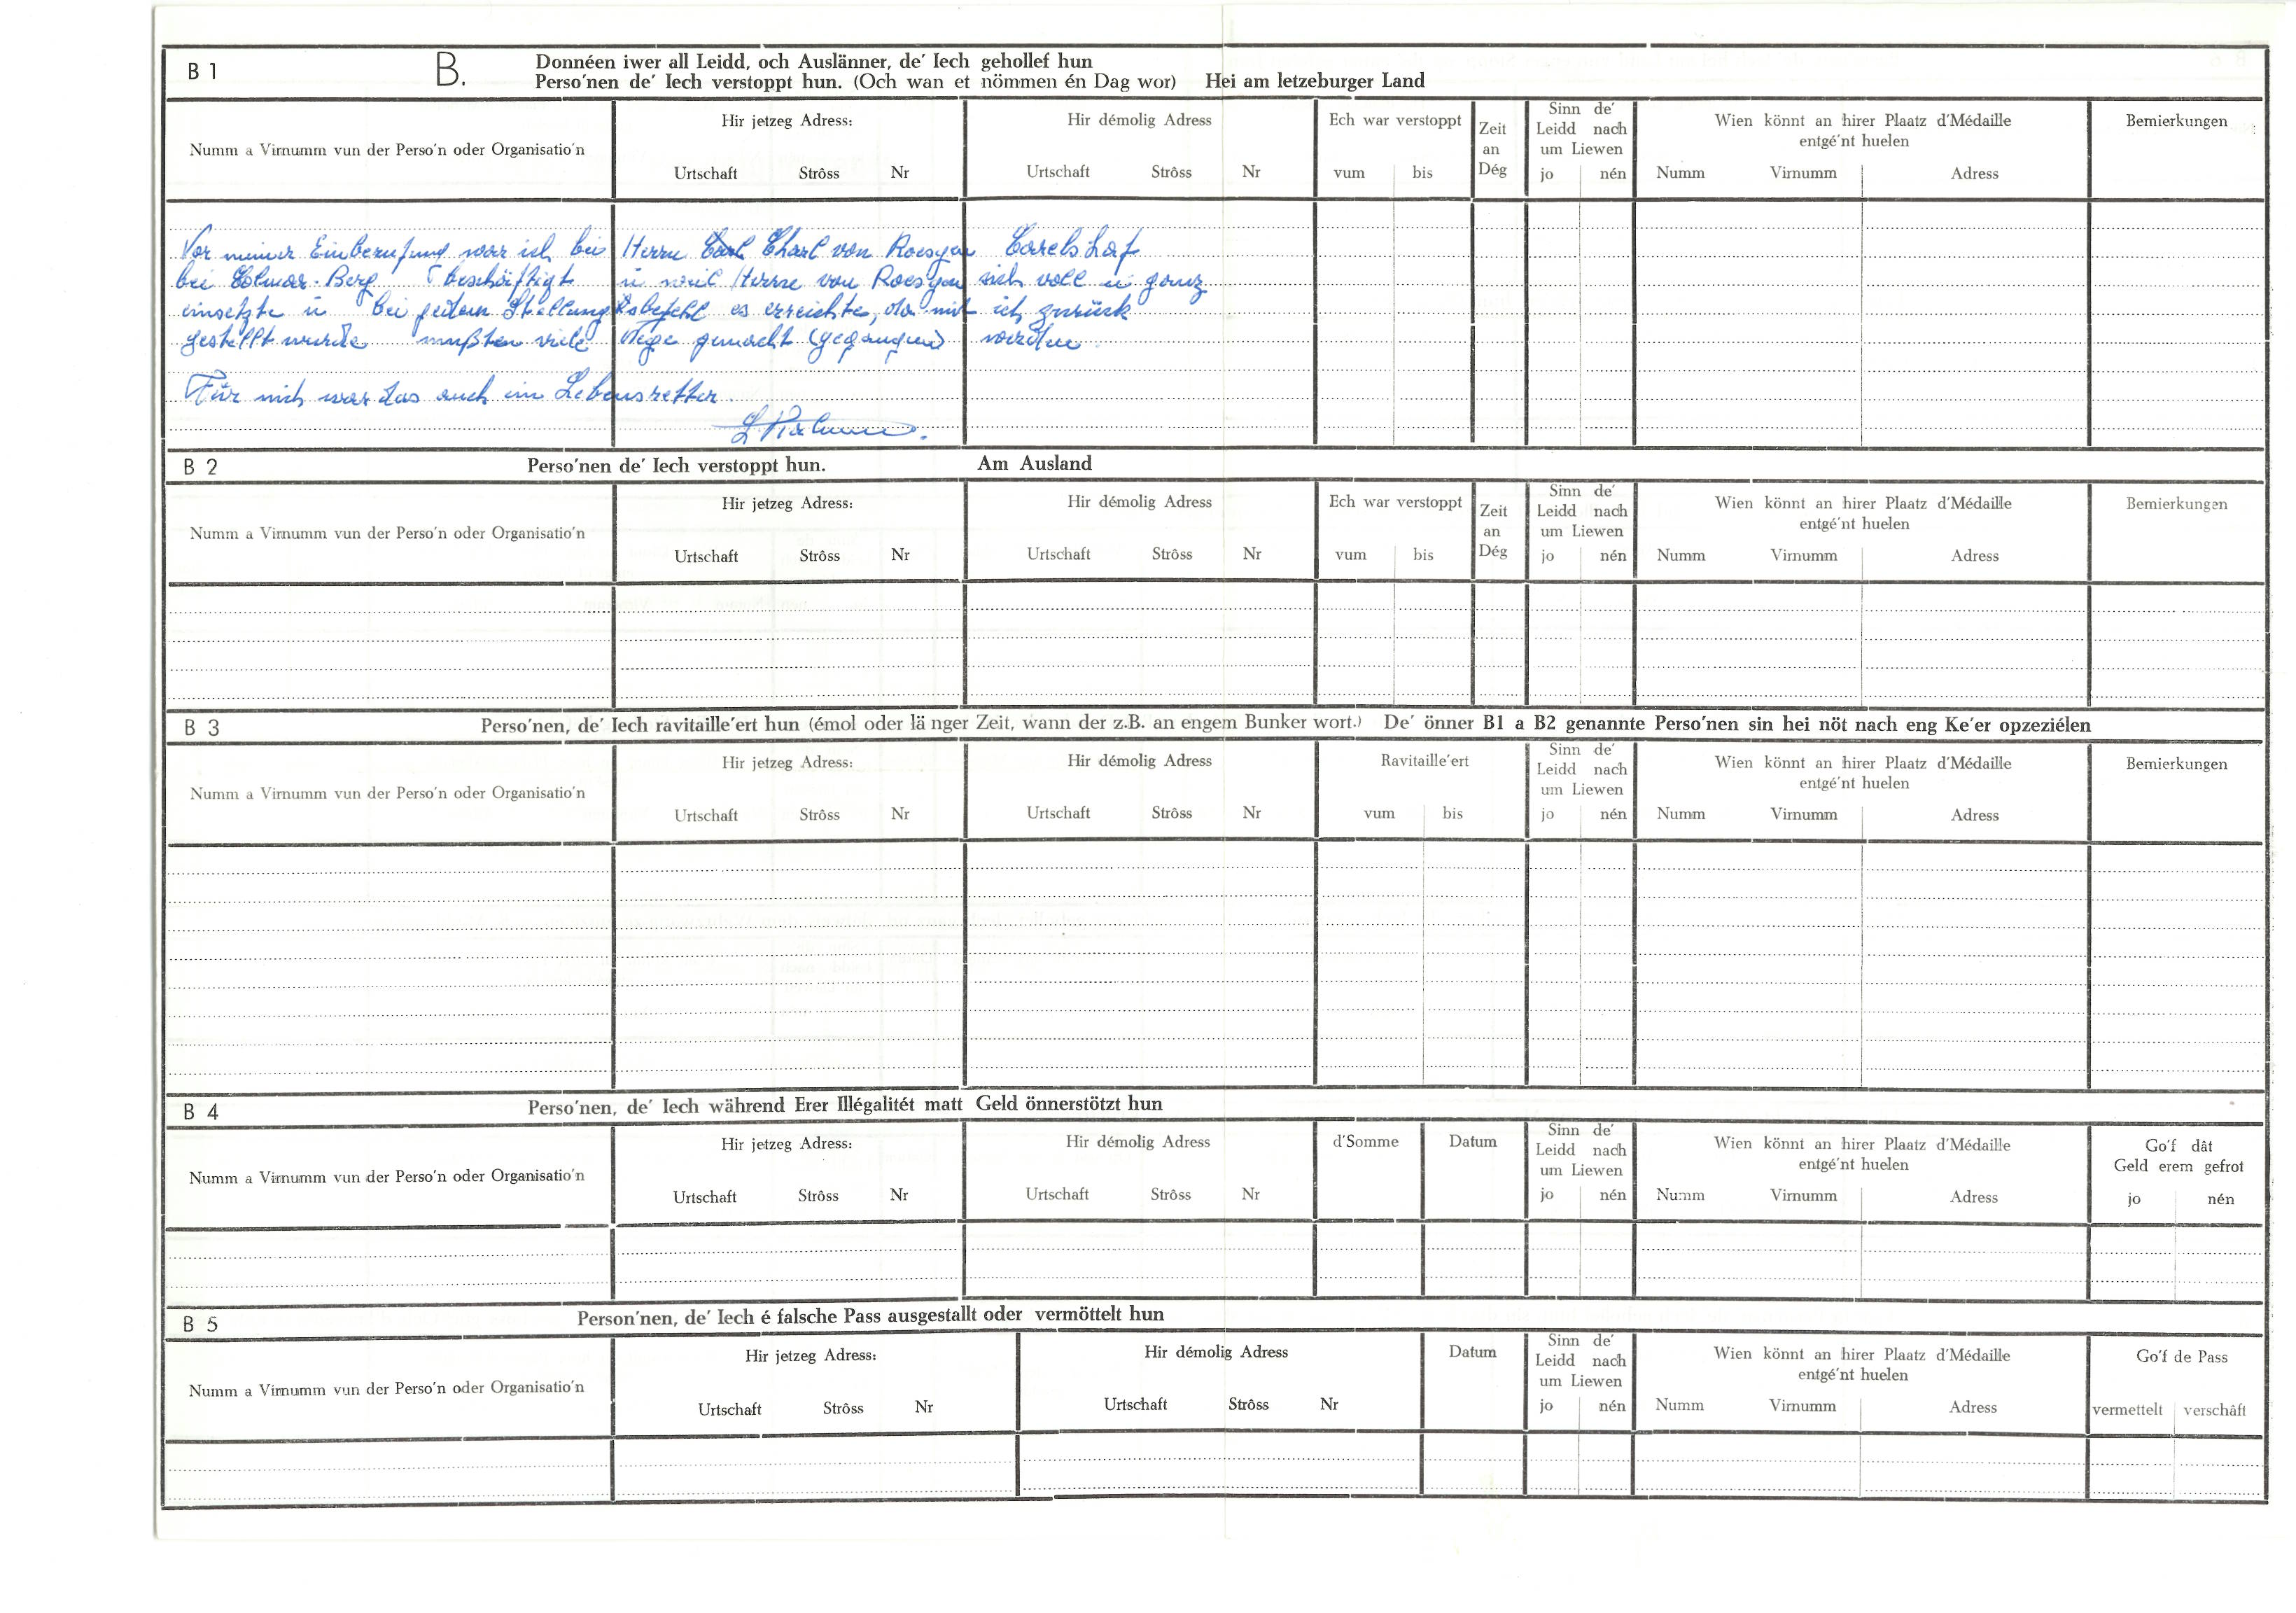 B 1
B.
Donnéen iwer all Leidd, och Auslänner, de' Iech gehollef hun
Perso'nen de' Iech verstoppt hun. (Och wan et nömmen én Dag wor) Hei am letzeburger Land
Numm a Virnumm vun der Perso'n oder Organisatio'n
Hir jetzeg Adress:
Urtschaft Strôss Nr
Hir démolig Adress
Urtschaft Strôss Nr
Ech war verstoppt
vum bis
Zeit
an
Dég
Sinn de'
Leidd nach
um Liewen
jo nén
Wien könnt an hirer Plaatz d'Médaille
entgé'nt huelen
Numm Virnumm Adress
Bemierkungen
Vor meiner Einberufung war ich bei Herrn Charl von Roesgen Carelshof
bei Colmar-Berg beschäftigt u weil Herrn von Roesgen sich voll u ganz
einsetzte u bei jedem Stellungsbefehl es erreichte, da mit ich zurück
gestellt wurde mußten viele Wege gemacht (gegangen) werden
Für mich war das auch ein Lebensretter.
B 2
Perso'nen de' Iech verstoppt hun. Am Ausland
Numm a Virnumm vun der Perso'n oder Organisatio'n
Hir jetzeg Adress:
Urtschaft Strôss Nr
Hir démolig Adress
Urtschaft Strôss Nr
Ech war verstoppt
vum bis
Zeit
an
Dég
Sinn de'
Leidd nach
um Liewen
jo nén
Wien könnt an hirer Plaatz d'Médaille
entgé'nt huelen
Numm Virnumm Adress
Bemierkungen
B 3
Perso'nen, de' Iech ravitaille'ert hun (émol oder länger Zeit, wann der z.B. an engem Bunker wort.) De' önner B1 a B2 genannte Perso'nen sin hei nöt nach eng Ke'er opzeziélen
Numm a Virnumm vun der Perso'n oder Organisatio'n
Hir jetzeg Adress:
Urtschaft Strôss Nr
Hir démolig Adress
Urtschaft Strôss Nr
Ravitaille'ert
vum bis
Sinn de'
Leidd nach
um Liewen
jo nén
Wien könnt an hirer Plaatz d'Médaille
entgé'nt huelen
Numm Virnumm Adress
Bemierkungen
B 4
Perso'nen, de' Iech während Erer Illégalitét matt Geld önnerstötzt hun
Numm a Virnumm vun der Perso'n oder Organisatio'n
Hir jetzeg Adress:
Urtschaft Strôss Nr
Hir démolig Adress
Urtschaft Strôss Nr
d'Somme
Datum
Sinn de'
Leidd nach
um Liewen
jo nén
Wien könnt an hirer Plaatz d'Médaille
entgé'nt huelen
Numm Virnumm Adress
Go'f dât
Geld erem gefrot
jo nén
B 5
Person'nen, de' Iech é falsche Pass ausgestallt oder vermöttelt hun
Numm a Virnumm vun der Perso'n oder Organisatio'n
Hir jetzeg Adress:
Urtschaft Strôss Nr
Hir démolig Adress
Urtschaft Strôss Nr
Datum
Sinn de'
Leidd nach
um Liewen
jo nén
Wien könnt an hirer Plaatz d'Médaille
entgé'nt huelen
Numm Virnumm Adress
Go'f de Pass
vermettelt verschâft